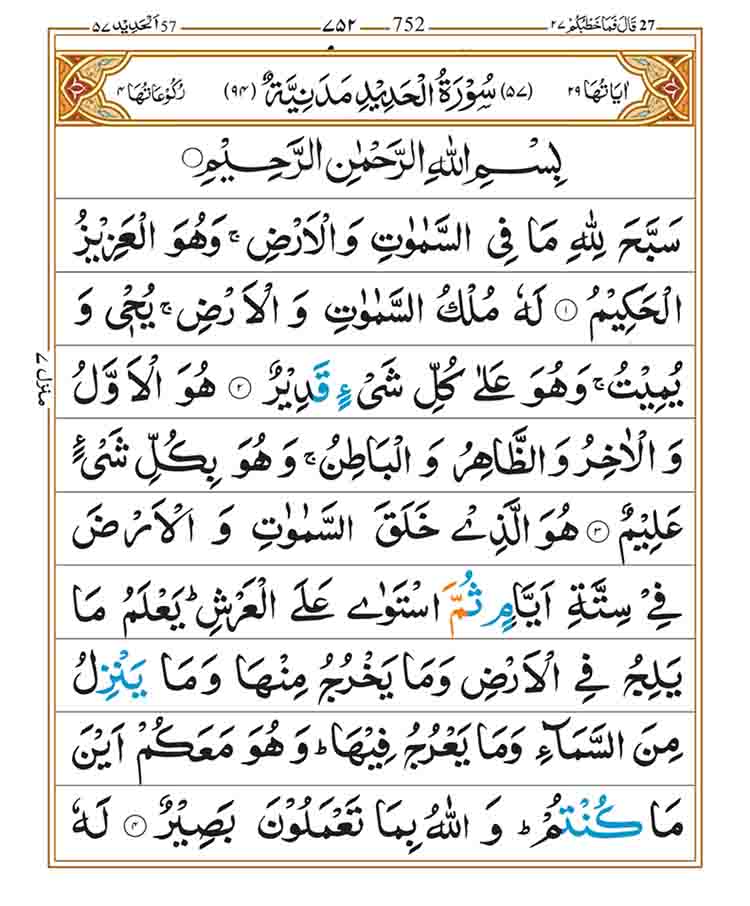 27 قَالَ فَمَا خَطْبُكُمْ ٢٧ 752 ٧٥٢ 57 اَلْحَدِيْد ٥٧
اٰيَاتُهَا ٢٩ (٥٧) سُوْرَةُ الْحَدِيْدِ مَدَنِيَّةٌ (٩٤) رُكُوْعَاتُهَا ٤
بِسْمِ اللّٰهِ الرَّحْمٰنِ الرَّحِيْمِ
سَبَّحَ لِلّٰهِ مَا فِى السَّمٰوٰتِ وَالْاَرْضِ ۚ وَهُوَ الْعَزِيْزُ
الْحَكِيْمُ ١ لَهٗ مُلْكُ السَّمٰوٰتِ وَ الْاَرْضِ ۚ يُحْيٖ وَ
يُمِيْتُ ۚ وَهُوَ عَلٰى كُلِّ شَىْءٍ قَدِيْرٌ ٢ هُوَ الْاَوَّلُ
وَ الْاٰخِرُ وَ الظَّاهِرُ وَ الْبَاطِنُ ۚ وَ هُوَ بِكُلِّ شَىْءٍ
عَلِيْمٌ ٣ هُوَ الَّذِىْ خَلَقَ السَّمٰوٰتِ وَ الْاَرْضَ
فِىْ سِتَّةِ اَيَّامٍ ثُمَّ اسْتَوٰى عَلَى الْعَرْشِ ؕ يَعْلَمُ مَا
يَلِجُ فِى الْاَرْضِ وَمَا يَخْرُجُ مِنْهَا وَمَا يَنْزِلُ
مِنَ السَّمَآءِ وَمَا يَعْرُجُ فِيْهَا ؕ وَ هُوَ مَعَكُمْ اَيْنَ
مَا كُنْتُمْ ؕ وَ اللّٰهُ بِمَا تَعْمَلُوْنَ بَصِيْرٌ ٤ لَهٗ
منزل ٧